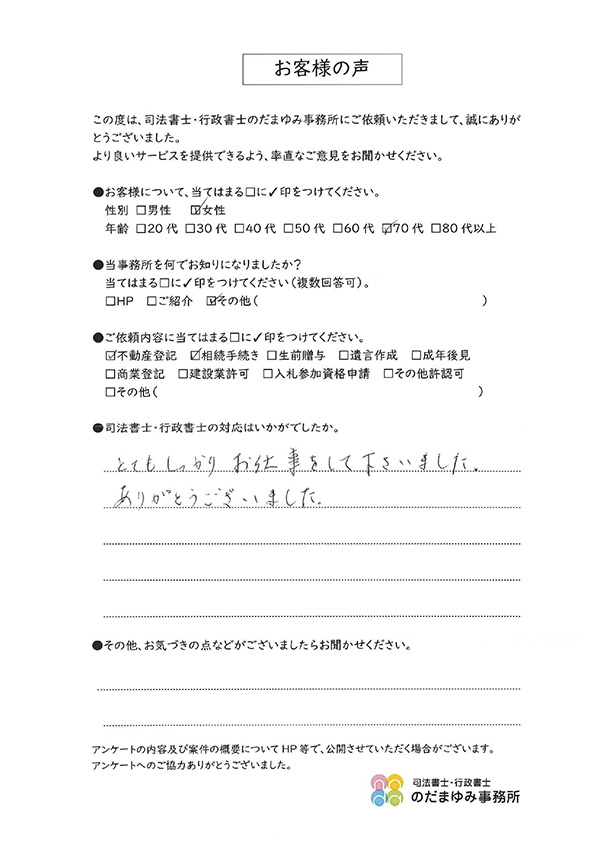 お客様の声
この度は、司法書士・行政書士のだまゆみ事務所にご依頼いただきまして、誠にありが
とうございました。
より良いサービスを提供できるよう、率直なご意見をお聞かせください。
●お客様について、当てはまる□に✓印をつけてください。
性別 □男性 ☑女性
年齢 □20代 □30代 □40代 □50代 □60代 ☑70代 □80代以上
●当事務所を何でお知りになりましたか?
当てはまる□に✓印をつけてください(複数回答可)。
□HP □ご紹介 ☑その他( )
●ご依頼内容に当てはまる□に✓印をつけてください。
☑不動産登記 ☑相続手続き □生前贈与 □遺言作成 □成年後見
□商業登記 □建設業許可 □入札参加資格申請 □その他許認可
□その他( )
●司法書士・行政書士の対応はいかがでしたか。
とてもしっかりお仕事をして下さいました。
ありがとうございました。
●その他、お気づきの点などがございましたらお聞かせください。
アンケートの内容及び案件の概要についてHP等で、公開させていただく場合がございます。
アンケートへのご協力ありがとうございました。
司法書士・行政書士
のだまゆみ事務所